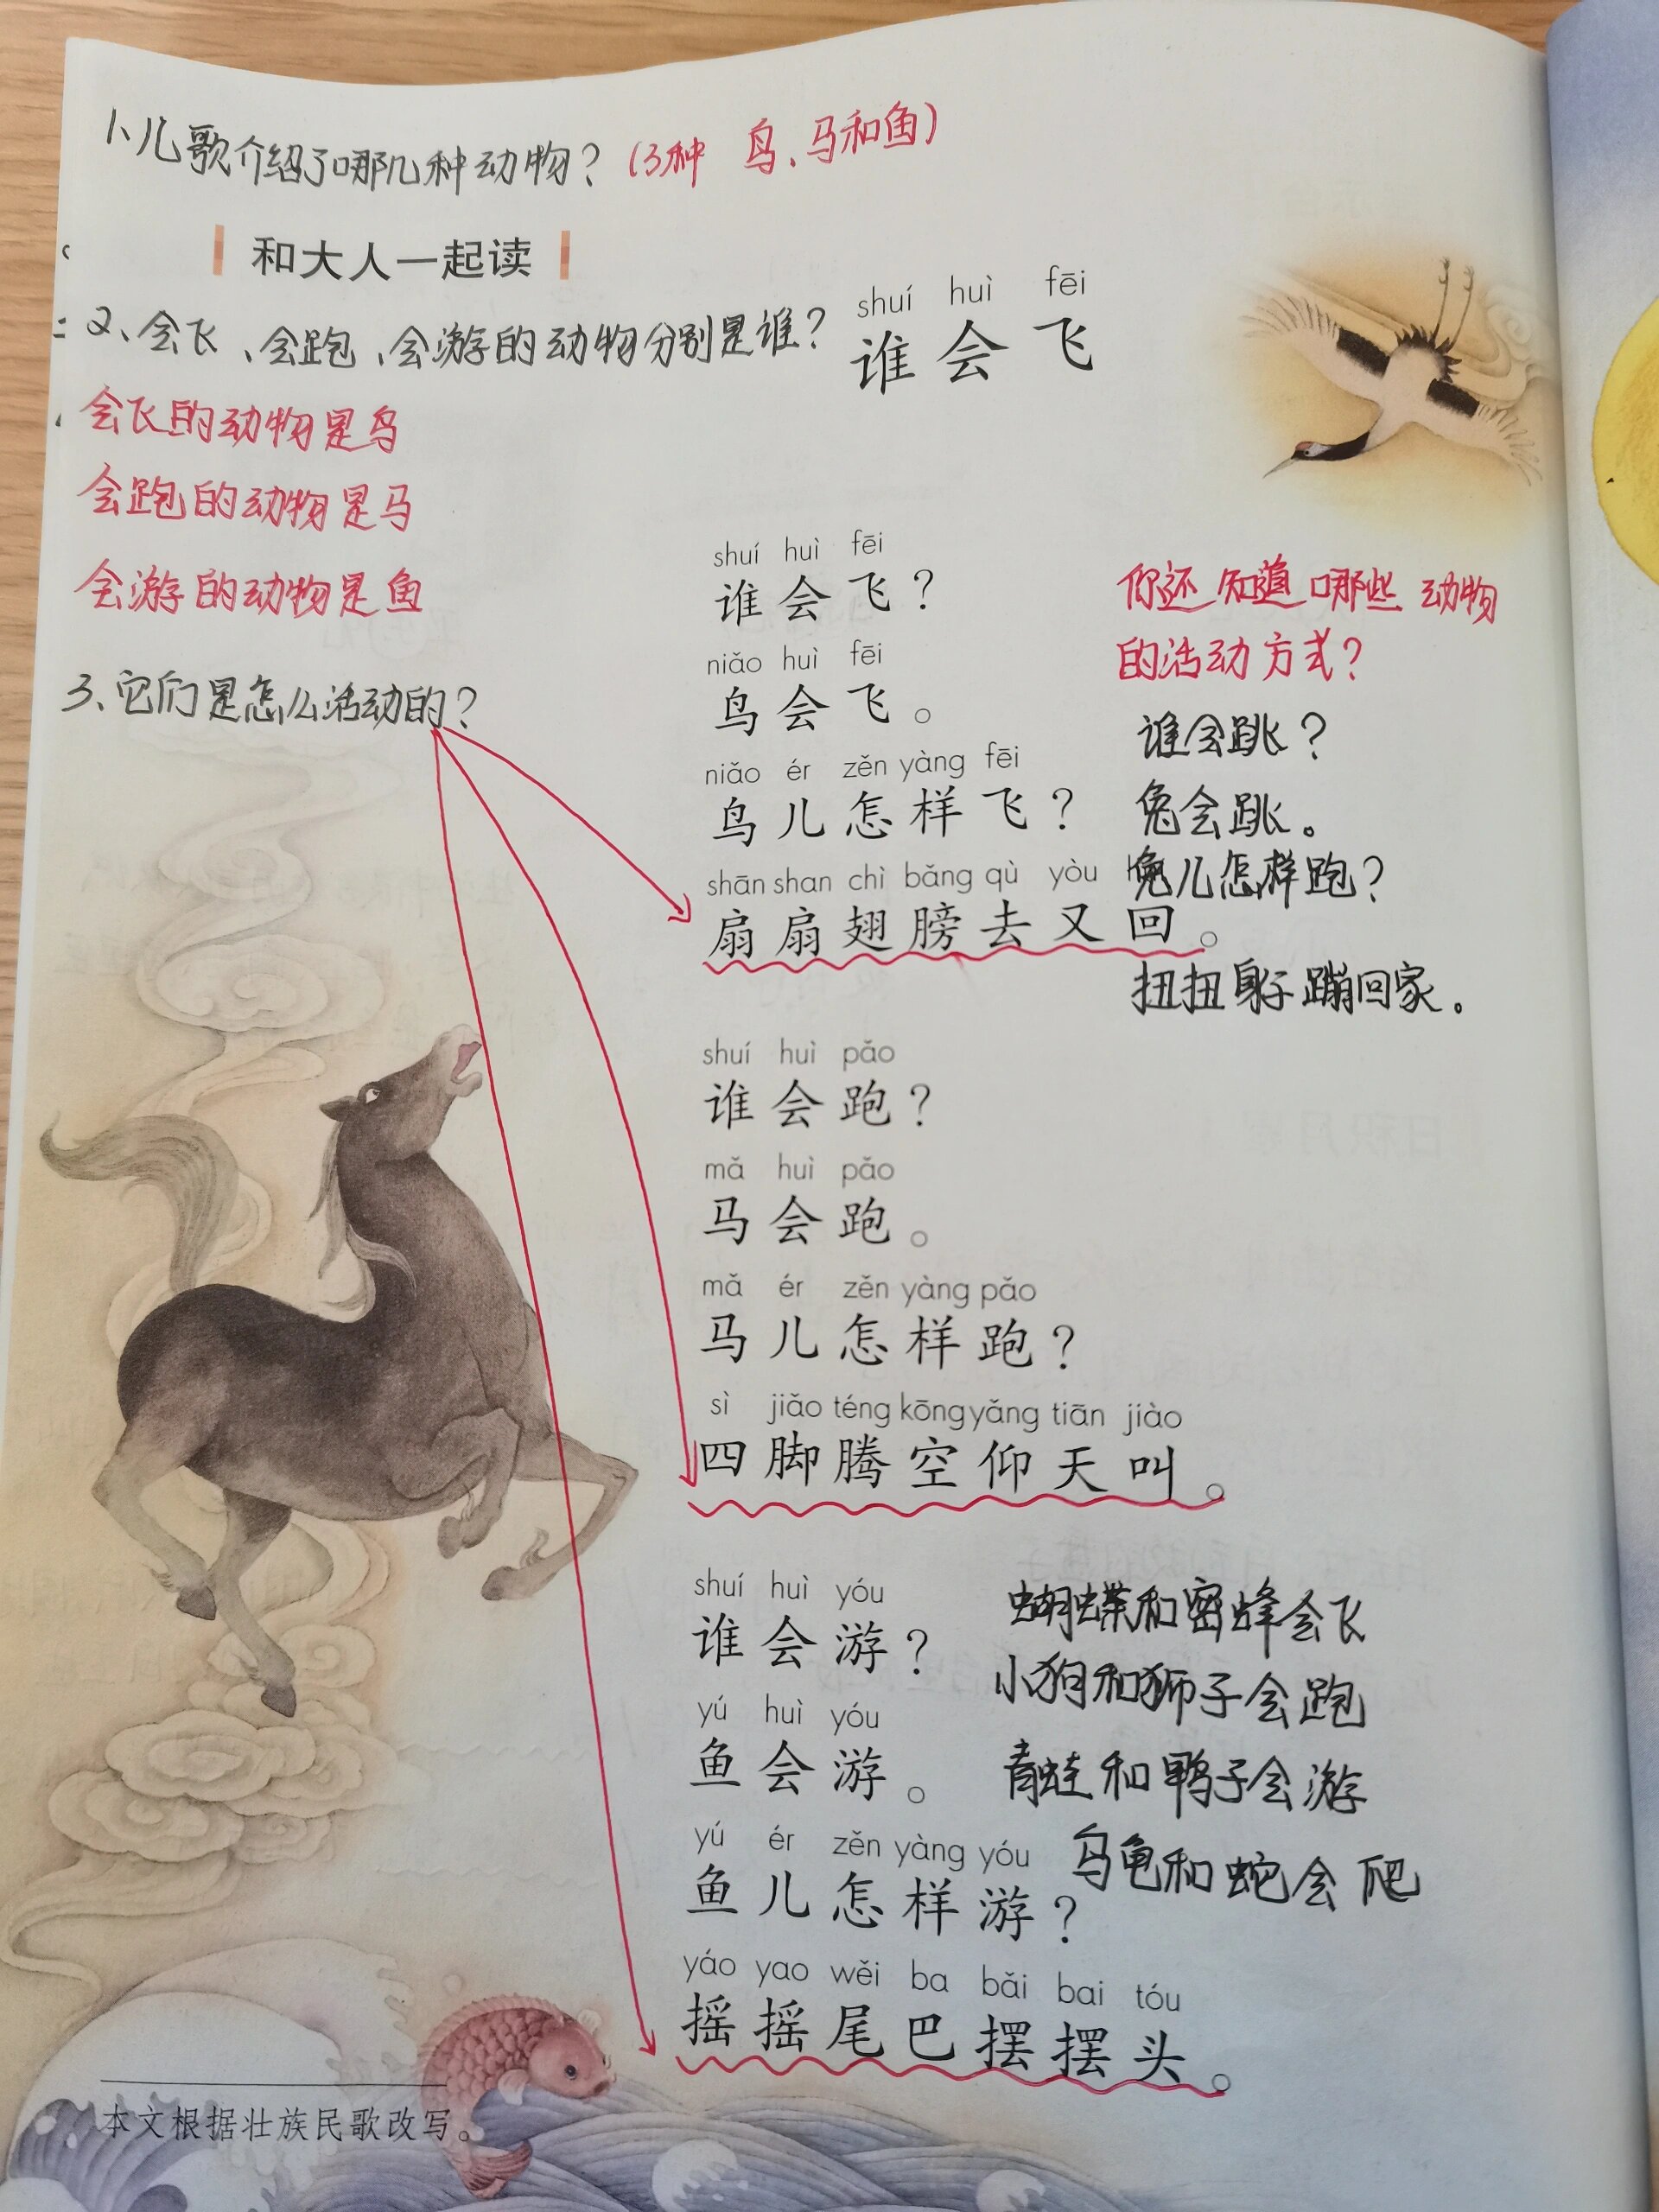 1、儿歌介绍了哪几种动物？（3种 鸟、马和鱼）
和大人一起读
2、会飞、会跑、会游的动物分别是谁？
会飞的动物是鸟
会跑的动物是马
会游的动物是鱼
3、它们是怎么活动的？
shuí huì fēi
谁会飞
shuí huì fēi
谁会飞？
niǎo huì fēi
鸟会飞。
niǎo ér zěn yàng fēi
鸟儿怎样飞？
shān shan chì bǎng qù yòu
扇扇翅膀去又回。
你还知道哪些动物
的活动方式？
谁会跳？
兔会跳。
兔儿怎样跑？
扭扭身子蹦回家。
shuí huì pǎo
谁会跑？
mǎ huì pǎo
马会跑。
mǎ ér zěn yàng pǎo
马儿怎样跑？
sì jiǎo téng kōng yǎng tiān jiào
四脚腾空仰天叫。
shuí huì yóu
谁会游？
yú huì yóu
鱼会游。
yú ér zěn yàng yóu
鱼儿怎样游？
yáo yao wěi ba bǎi bai tóu
摇摇尾巴摆摆头。
蝴蝶和密蜂会飞
小狗和狮子会跑
青蛙和鸭子会游
乌龟和蛇会爬
本文根据壮族民歌改写。